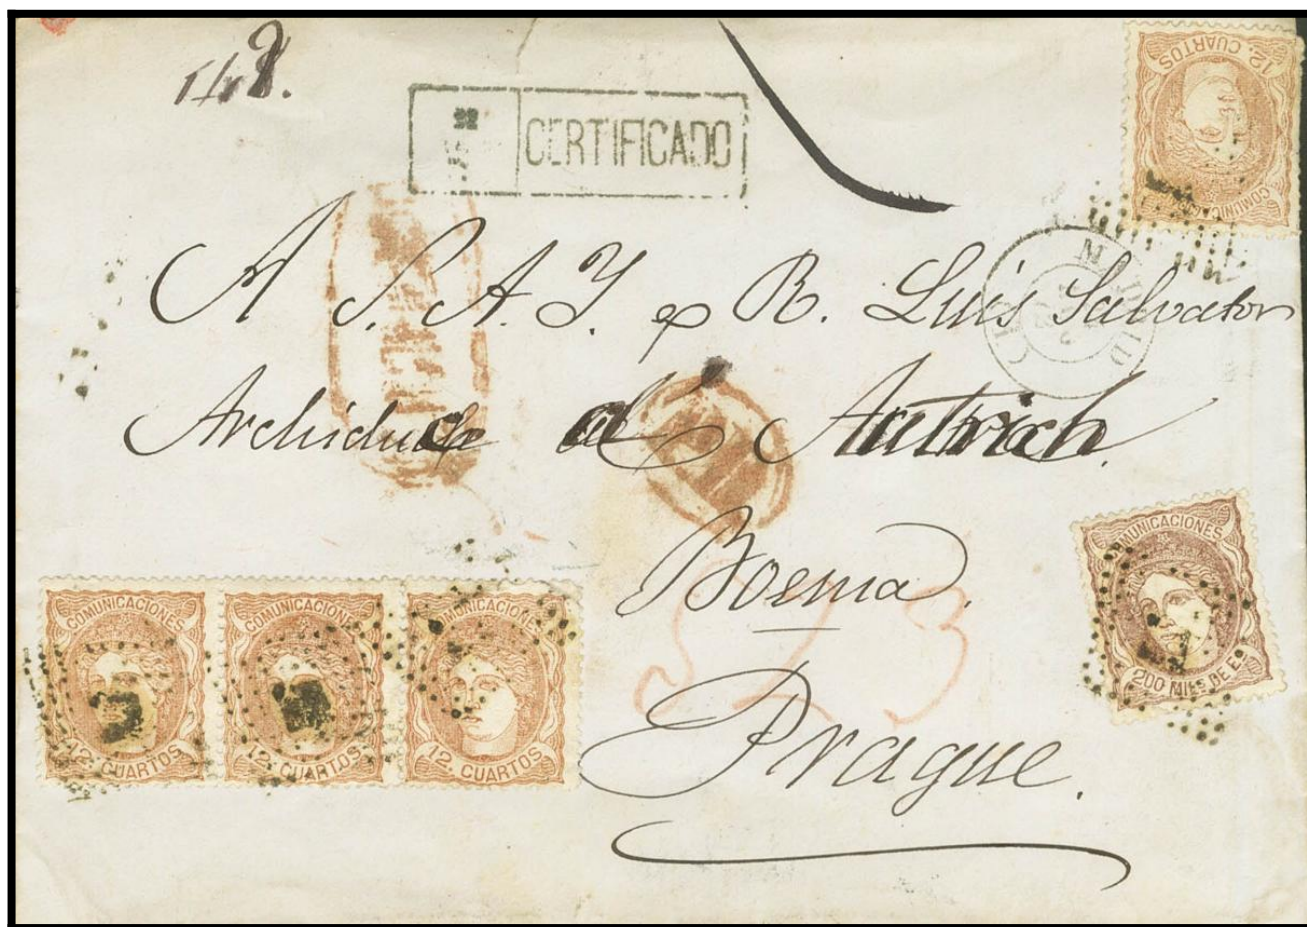 148.
CERTIFICADO
12. CUARTOS
COMUNICACIONES
MADRID
A S. A. I. y R. Luis Salvator
Archiduc d' Autrich.
Boema.
Prague.
523
COMUNICACIONES
200 MILS DE Eº
COMUNICACIONES
12. CUARTOS
COMUNICACIONES
12. CUARTOS
COMUNICACIONES
12. CUARTOS